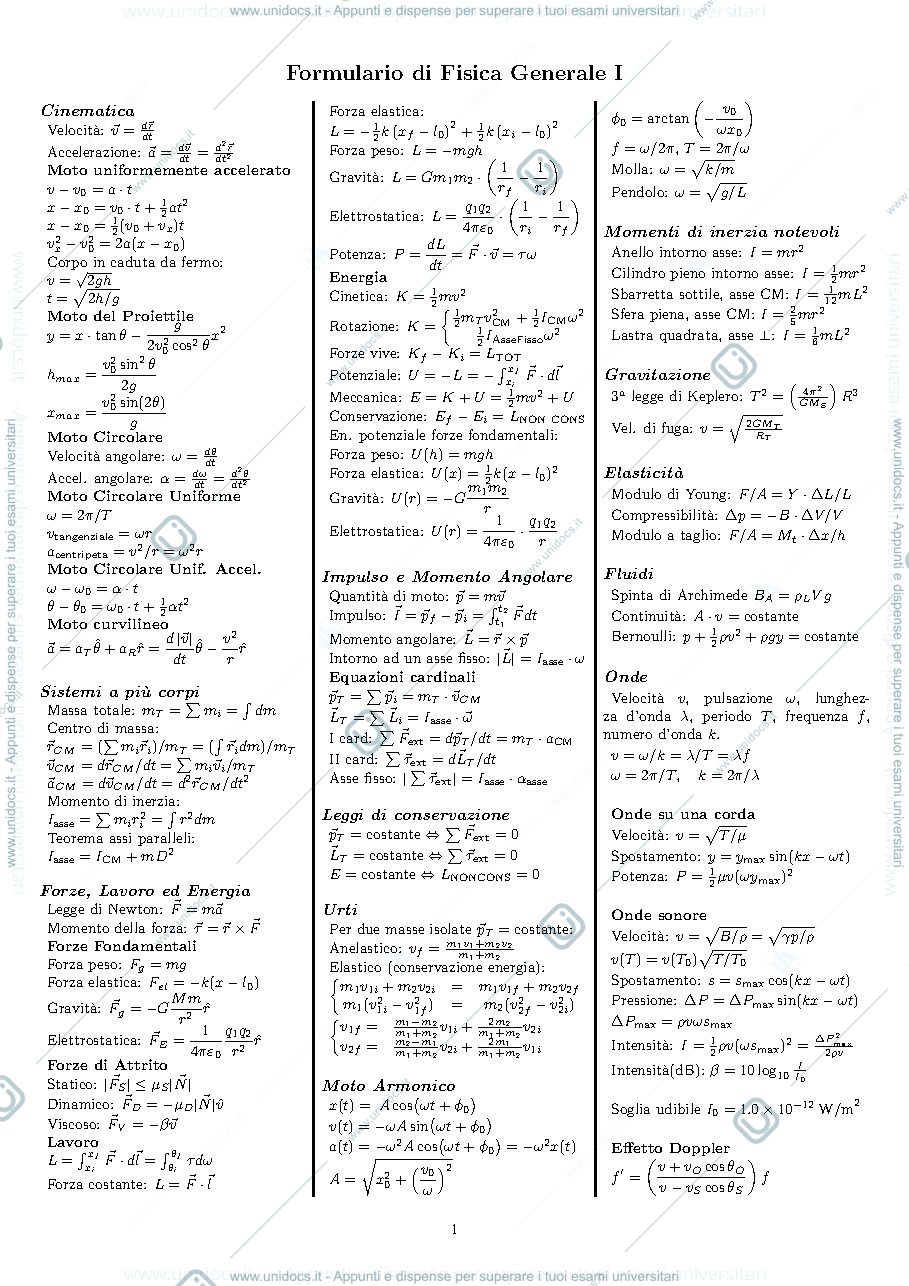 www.unidocs.it - Appunti e dispense per superare i tuoi esami universitari
Formulario di Fisica Generale I
Cinematica
Velocità: v⃗ = dr⃗/dt
Accelerazione: a⃗ = dv⃗/dt = d²r⃗/dt²
Moto uniformemente accelerato
v − v₀ = a · t
x − x₀ = v₀ · t + ½at²
x − x₀ = ½(v₀ + vₓ)t
vₓ² − v₀² = 2a(x − x₀)
Corpo in caduta da fermo:
v = √(2gh)
t = √(2h/g)
Moto del Proiettile
y = x · tan θ − g/(2v₀² cos² θ) x²
h_max = v₀² sin² θ/2g
x_max = v₀² sin(2θ)/g
Moto Circolare
Velocità angolare: ω = dθ/dt
Accel. angolare: α = dω/dt = d²θ/dt²
Moto Circolare Uniforme
ω = 2π/T
v_tangenziale = ωr
a_centripeta = v²/r = ω²r
Moto Circolare Unif. Accel.
ω − ω₀ = α · t
θ − θ₀ = ω₀ · t + ½αt²
Moto curvilineo
a⃗ = a_T θ̂ + a_R r̂ = d|v⃗|/dt θ̂ − v²/r r̂
Sistemi a più corpi
Massa totale: m_T = ∑ m_i = ∫ dm
Centro di massa:
r⃗_CM = (∑ m_i r⃗_i)/m_T = (∫ r⃗_i dm)/m_T
v⃗_CM = dr⃗_CM/dt = ∑ m_i v⃗_i/m_T
a⃗_CM = dv⃗_CM/dt = d²r⃗_CM/dt²
Momento di inerzia:
I_asse = ∑ m_i r_i² = ∫ r² dm
Teorema assi paralleli:
I_asse = I_CM + mD²
Forze, Lavoro ed Energia
Legge di Newton: F⃗ = ma⃗
Momento della forza: τ⃗ = r⃗ × F⃗
Forze Fondamentali
Forza peso: F_g = mg
Forza elastica: F_el = −k(x − l₀)
Gravità: F⃗_g = −G Mm/r² r̂
Elettrostatica: F⃗_E = 1/(4πε₀) q₁q₂/r² r̂
Forze di Attrito
Statico: |F⃗_S| ≤ μ_S|N⃗|
Dinamico: F⃗_D = −μ_D|N⃗|v̂
Viscoso: F⃗_V = −βv⃗
Lavoro
L = ∫_{x_i}^{x_f} F⃗ · dl⃗ = ∫_{θ_i}^{θ_f} τdω
Forza costante: L = F⃗ · l⃗
Forza elastica:
L = −½k (x_f − l₀)² + ½k (x_i − l₀)²
Forza peso: L = −mgh
Gravità: L = Gm₁m₂ · (1/r_f − 1/r_i)
Elettrostatica: L = q₁q₂/(4πε₀) · (1/r_i − 1/r_f)
Potenza: P = dL/dt = F⃗ · v⃗ = τω
Energia
Cinetica: K = ½mv²
Rotazione: K = { ½m_T v²_CM + ½I_CM ω²
½I_AsseFisso ω²
Forze vive: K_f − K_i = L_TOT
Potenziale: U = −L = −∫_{x_i}^{x_f} F⃗ · dl⃗
Meccanica: E = K + U = ½mv² + U
Conservazione: E_f − E_i = L_NON CONS
En. potenziale forze fondamentali:
Forza peso: U(h) = mgh
Forza elastica: U(x) = ½k(x − l₀)²
Gravità: U(r) = −G m₁m₂/r
Elettrostatica: U(r) = 1/(4πε₀) · q₁q₂/r
Impulso e Momento Angolare
Quantità di moto: p⃗ = mv⃗
Impulso: I⃗ = p⃗_f − p⃗_i = ∫_{t₁}^{t₂} F⃗dt
Momento angolare: L⃗ = r⃗ × p⃗
Intorno ad un asse fisso: |L⃗| = I_asse · ω
Equazioni cardinali
p⃗_T = ∑ p⃗_i = m_T · v⃗_CM
L⃗_T = ∑ L⃗_i = I_asse · ω⃗
I card: ∑ F⃗_ext = dp⃗_T/dt = m_T · a_CM
II card: ∑ τ⃗_ext = dL⃗_T/dt
Asse fisso: |∑ τ⃗_ext| = I_asse · α_asse
Leggi di conservazione
p⃗_T = costante ⇔ ∑ F⃗_ext = 0
L⃗_T = costante ⇔ ∑ τ⃗_ext = 0
E = costante ⇔ L_NONCONS = 0
Urti
Per due masse isolate p⃗_T = costante:
Anelastico: v_f = (m₁v₁+m₂v₂)/(m₁+m₂)
Elastico (conservazione energia):
{ m₁v_1i + m₂v_2i = m₁v_1f + m₂v_2f
m₁(v²_1i − v²_1f) = m₂(v²_2f − v²_2i)
{ v_1f = (m₁−m₂)/(m₁+m₂) v_1i + 2m₂/(m₁+m₂) v_2i
v_2f = (m₂−m₁)/(m₁+m₂) v_2i + 2m₁/(m₁+m₂) v_1i
Moto Armonico
x(t) = A cos(ωt + ϕ₀)
v(t) = −ωA sin(ωt + ϕ₀)
a(t) = −ω²A cos(ωt + ϕ₀) = −ω²x(t)
A = √(x₀² + (v₀/ω)²)
ϕ₀ = arctan(−v₀/(ωx₀))
f = ω/2π, T = 2π/ω
Molla: ω = √(k/m)
Pendolo: ω = √(g/L)
Momenti di inerzia notevoli
Anello intorno asse: I = mr²
Cilindro pieno intorno asse: I = ½mr²
Sbarretta sottile, asse CM: I = 1/12 mL²
Sfera piena, asse CM: I = 2/5 mr²
Lastra quadrata, asse ⊥: I = 1/6 mL²
Gravitazione
3ª legge di Keplero: T² = (4π²/GM_S) R³
Vel. di fuga: v = √(2GM_T/R_T)
Elasticità
Modulo di Young: F/A = Y · ΔL/L
Compressibilità: Δp = −B · ΔV/V
Modulo a taglio: F/A = M_t · Δx/h
Fluidi
Spinta di Archimede B_A = ρ_L V g
Continuità: A · v = costante
Bernoulli: p + ½ρv² + ρgy = costante
Onde
Velocità v, pulsazione ω, lunghez-
za d'onda λ, periodo T, frequenza f,
numero d'onda k.
v = ω/k = λ/T = λf
ω = 2π/T, k = 2π/λ
Onde su una corda
Velocità: v = √(T/μ)
Spostamento: y = y_max sin(kx − ωt)
Potenza: P = ½μv(ωy_max)²
Onde sonore
Velocità: v = √(B/ρ) = √(γp/ρ)
v(T) = v(T₀)√(T/T₀)
Spostamento: s = s_max cos(kx − ωt)
Pressione: ΔP = ΔP_max sin(kx − ωt)
ΔP_max = ρvωs_max
Intensità: I = ½ρv(ωs_max)² = ΔP²_max/2ρv
Intensità(dB): β = 10 log₁₀ I/I₀
Soglia udibile I₀ = 1.0 × 10⁻¹² W/m²
Effetto Doppler
f′ = ((v + v_O cos θ_O)/(v − v_S cos θ_S)) f
1
www.unidocs.it - Appunti e dispense per superare i tuoi esami universitari